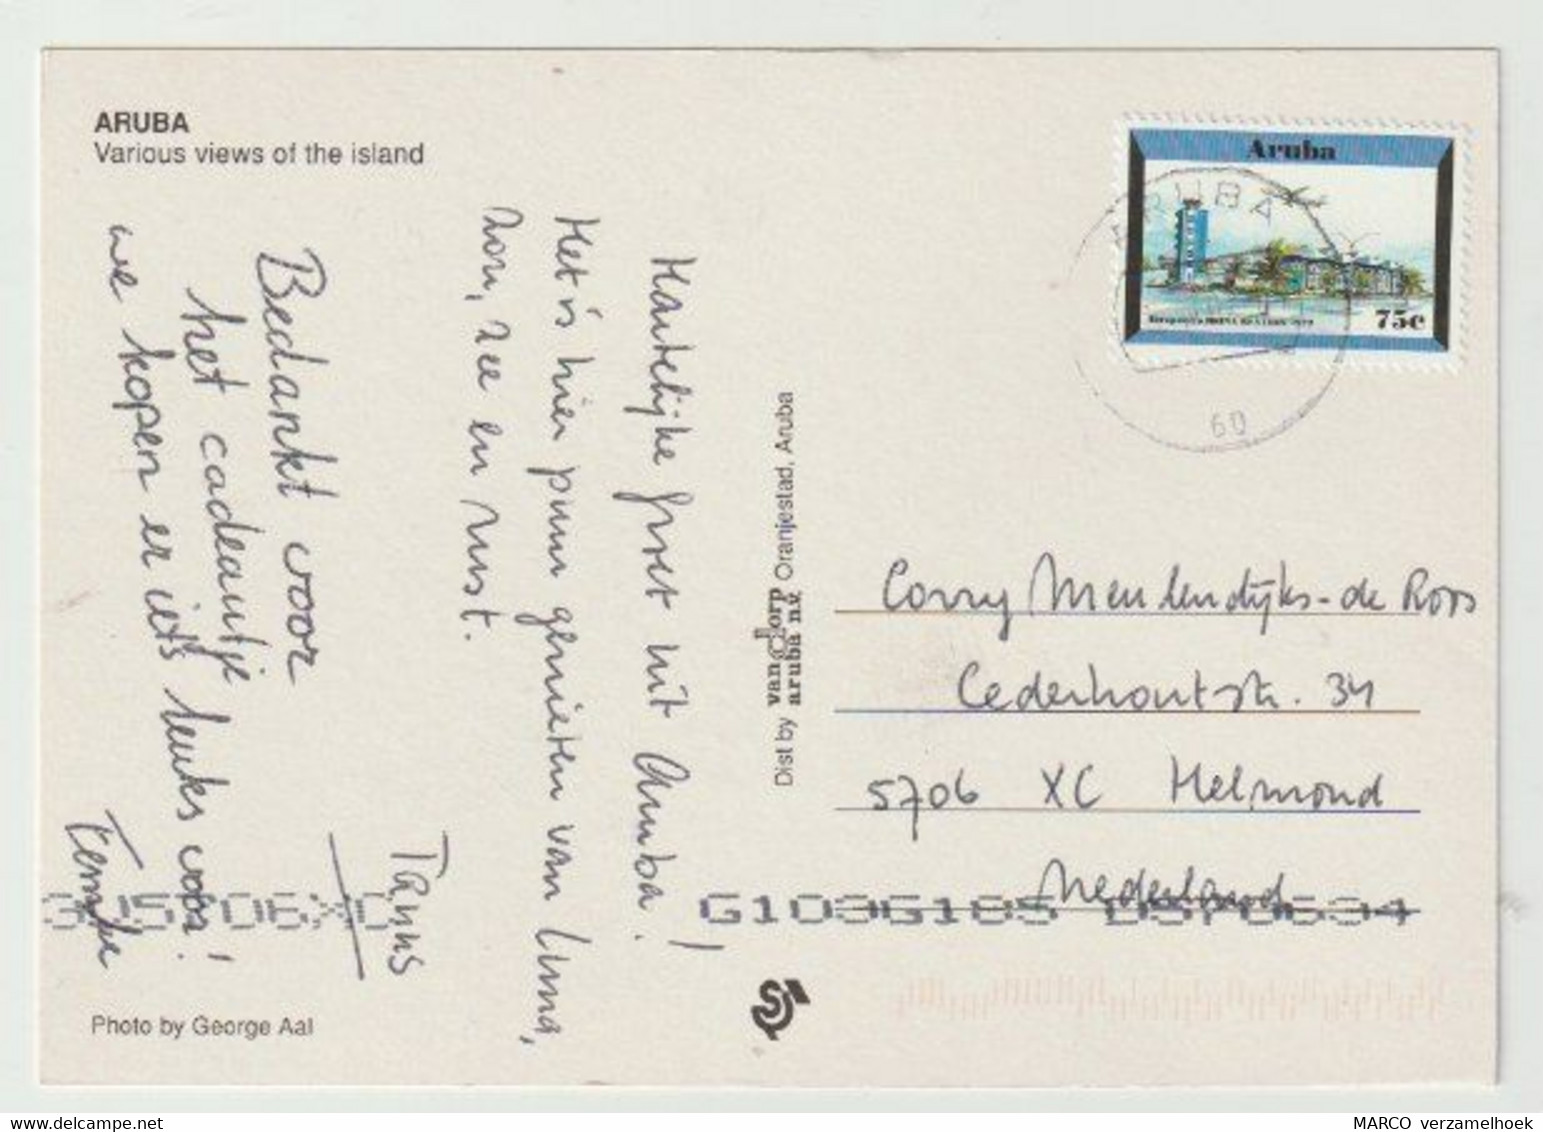 ARUBA
Various views of the island
Hartelijke groet uit Aruba!
Het is hier puur genieten van luna,
zon, zee en rust.
Tanus
Bedankt voor
het cadeautje
we kopen er iets leuks voor!
Femke
Photo by George Aal
Dist by van dorp aruba n.v. Oranjestad, Aruba
Aruba
75c
ARUBA
60
Corry Meulendijks-de Roos
Cederhoutstr. 34
5706 XC Helmond
Nederland
MARCO verzamelhoek